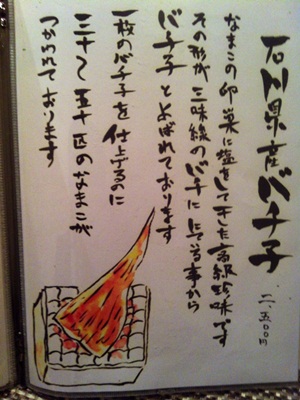 石川県産バチ子
二、五〇〇円
なまこの卵巣に塩をしてできた高級珍味です
その形が三味線のバチににてる事から
バチ子とよばれております
一枚のバチ子を仕上げるのに
三十〜五十匹のなまこが
つかわれております